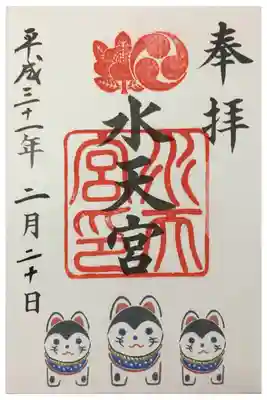 奉拝
水天宮
水天宮印
平成三十一年 二月二十日